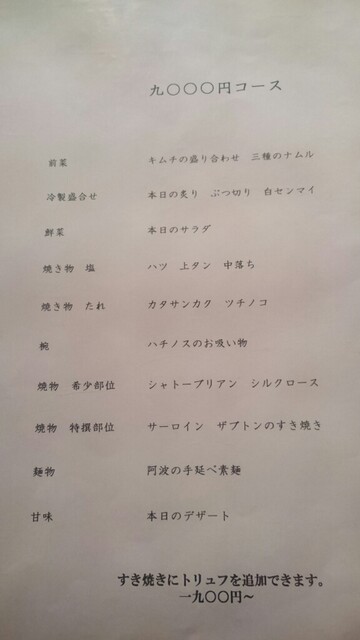 九〇〇〇円コース
前菜 キムチの盛り合わせ 三種のナムル
冷製盛合せ 本日の炙り ぶつ切り 白センマイ
鮮菜 本日のサラダ
焼き物 塩 ハツ 上タン 中落ち
焼き物 たれ カタサンカク ツチノコ
椀 ハチノスのお吸い物
焼物 希少部位 シャトーブリアン シルクロース
焼物 特撰部位 サーロイン ザブトンのすき焼き
麺物 阿波の手延べ素麺
甘味 本日のデザート
すき焼きにトリュフを追加できます。
一九〇〇円～